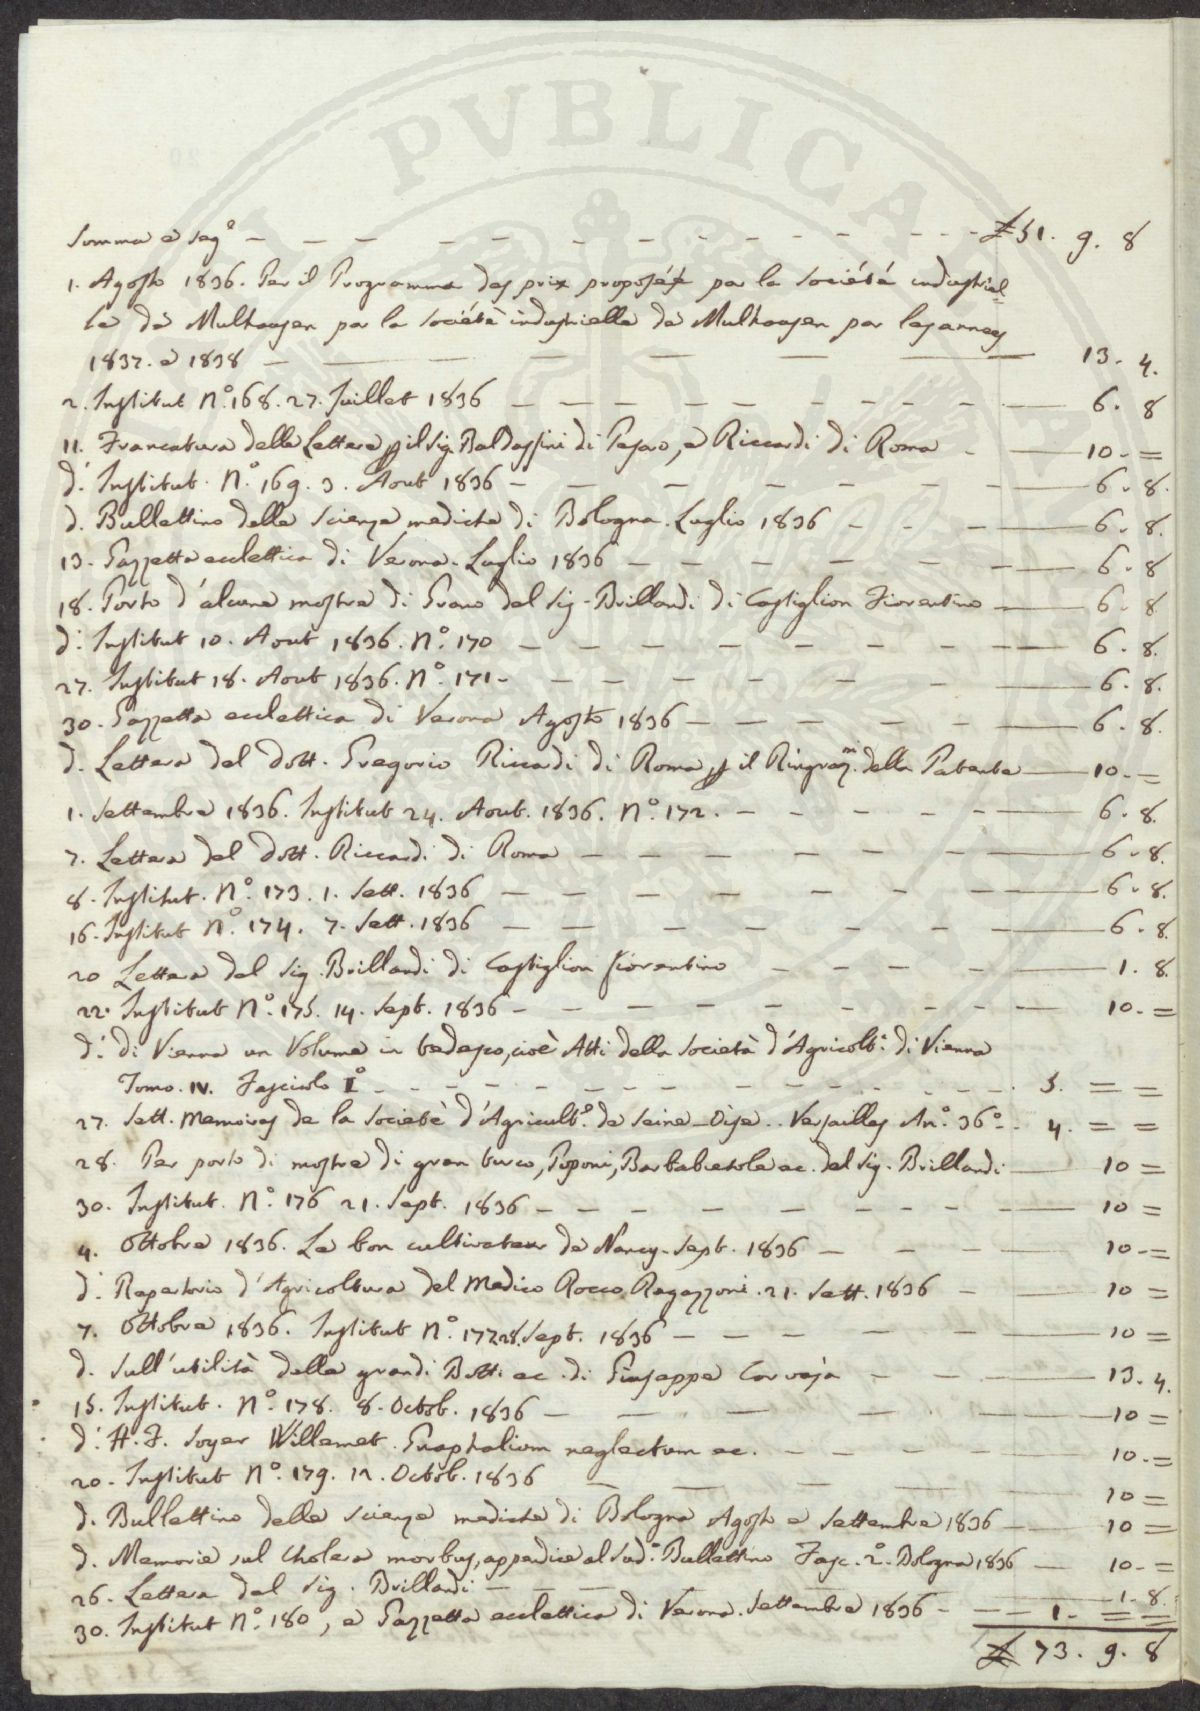 PVBLICAE
Somma e seg.e – – – – – – – – – – – £ 51. 9. 8
1. Agosto 1836. Per il Programma des prix proposés par la Société industriel=
le de Mulhausen par la Société industrielle de Mulhausen par les annes
1837. e 1838 – – – – – 13. 4.
2. Institut N.o 168. 27. Juillet 1836 – – – – – – – 6. 8
11. Francatura delle Lettere p il Sig. Baldassini di Pesaro, e Riccardi di Roma – 10. =
d.o Institut. N.o 169. 3. Aout 1836 – – – – – – 6. 8.
d. Bullettino delle Scienze mediche di Bologna. Luglio 1836 – – – 6. 8.
13. Gazzetta eclettica di Verona. Luglio 1836 – – – – – 6. 8
18. Porto d'alcune mostre di Grano del Sig. Brillandi di Castiglion Fiorentino – 6. 8
d.o Institut 10. Aout 1836. N.o 170 – – – – – – – 6. 8.
27. Institut 18. Aout 1836. N.o 171 – – – – – – – 6. 8.
30. Gazzetta eclettica di Verona Agosto 1836 – – – – – 6. 8.
d. Lettera del Dott. Gregorio Riccardi di Roma p il Ringraz.m della Patente – 10. =
1. Settembre 1836. Institut 24. Aout. 1836. N.o 172. – – – – – 6. 8.
7. Lettera del Dott. Riccardi di Roma – – – – – – 6. 8.
8. Institut. N.o 173. 1. Sett. 1836 – – – – – – 6. 8.
16. Institut N.o 174. 7. Sett. 1836 – – – – – – 6. 8.
20 Lettera del Sig. Brillandi di Castiglion fiorentino – – – – 1. 8.
22. Institut N.o 175. 14. Sept. 1836 – – – – – – – 10. =
d.o di Vienna un Volume in tedesco, cioè Atti della Società d'Agricolt.a di Vienna
Tomo. IV. Fascicolo I.o – – – – – – – – – – 5. = =
27. Sett. Memoires de la Societè d'Agricult.e de Seine-Oise.. Versailles An.o 36.o – 4. = =
28. Per porto di mostre di gran turco, Poponi, Barbabietole ec. del Sig. Brillandi – 10 =
30. Institut. N.o 176 21. Sept. 1836 – – – – – – – 10 =
4. Ottobre 1836. Le bon cultivateur de Nancy. Sept. 1836 – – – 10. =
d.o Repertorio d'Agricoltura del Medico Rocco Ragazzoni. 21. Sett. 1836 – 10 =
7. Ottobre 1836. Institut N.o 177. 28. Sept. 1836 – – – – – 10 =
d. Sull'utilità delle grandi Botti ec. di Giuseppe Corvaja – – – 13. 4.
15. Institut. N.o 178. 8. Octob. 1836 – – – – – 10 =
d.o H. F. Soyer Willemet. Gnaphalium neglectum ec. – – – – 10. =
20. Institut N.o 179. 12. Octob. 1836 – – – – – 10 =
d. Bullettino delle Scienze mediche di Bologna Agosto e Settembre 1836 – 10 =
d. Memorie sul Cholera morbus, appendice al Sud.o Bullettino Fasc. 2.o Bologna 1836 – 10. =
26. Lettera del Sig. Brillandi – – – 1. 8.
30. Institut N.o 180, e Gazzetta eclettica di Verona. Settembre 1836 – – – 1. = =
£ 73. 9. 8